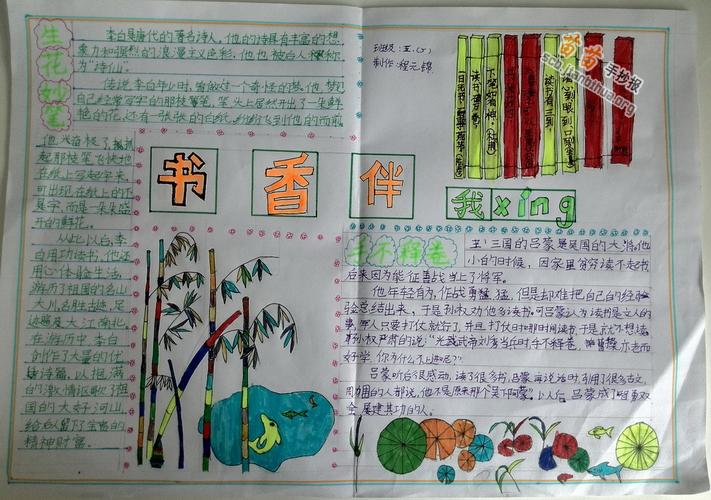 生花妙笔
李白是唐代的著名诗人，他的诗具有丰富的想
象力和强烈的浪漫主义色彩，他也被后人称称
为"诗仙"。
传说，李白年少时，曾做过一个奇怪的梦，他梦见
自己经常写字的那枝毛笔，笔头上居然开出了一朵鲜
艳的花，还有一张张的白纸，纷纷飞到他的面前
他兴奋极了，抓
起那枝笔飞快地
在纸上写起字来，
可出现在纸上的不
是字，而是一朵朵盛
开的鲜花。
从此以后，李
白用功读书，他还
用心体验生活
游历了祖国的名山
大川，名胜古迹，足
迹遍及大江南北。
在游历中，李白
创作了大量的优
诗篇，以饱满
的激情讴歌了祖
国的大好河山，
给后人留下了宝贵的
精神财富。
班级：五.(5)
制作：程元锦
下笔如有神
读书破万卷
读书有三到
心到眼到口到
苗苗手抄报
scb.fanbihua.org
书香伴
我xing
手不释卷
三国的吕蒙是吴国的大将，他
小的时候，因家里贫穷读不起书
后来因为能征善战当上了将军。
他年轻有为，作战勇猛，但是却难把自己的经验
总结出来，于是孙权劝他多读书，可吕蒙认为读书是文人的
事，军人只要打仗就行了，并且打仗日忙那时间读书，于是就不想读
孙权严肃的说："光武帝刘秀当兵时手不释卷，曹操亦老而
好学，你为什么不上进呢？"
吕蒙听后很感动，读了很多书，吕蒙再说话时，引用了很多古文，
周围的人都说，他不是原来那个吴下阿蒙"，以后，吕蒙成了智勇双
全，屡建其功的人。